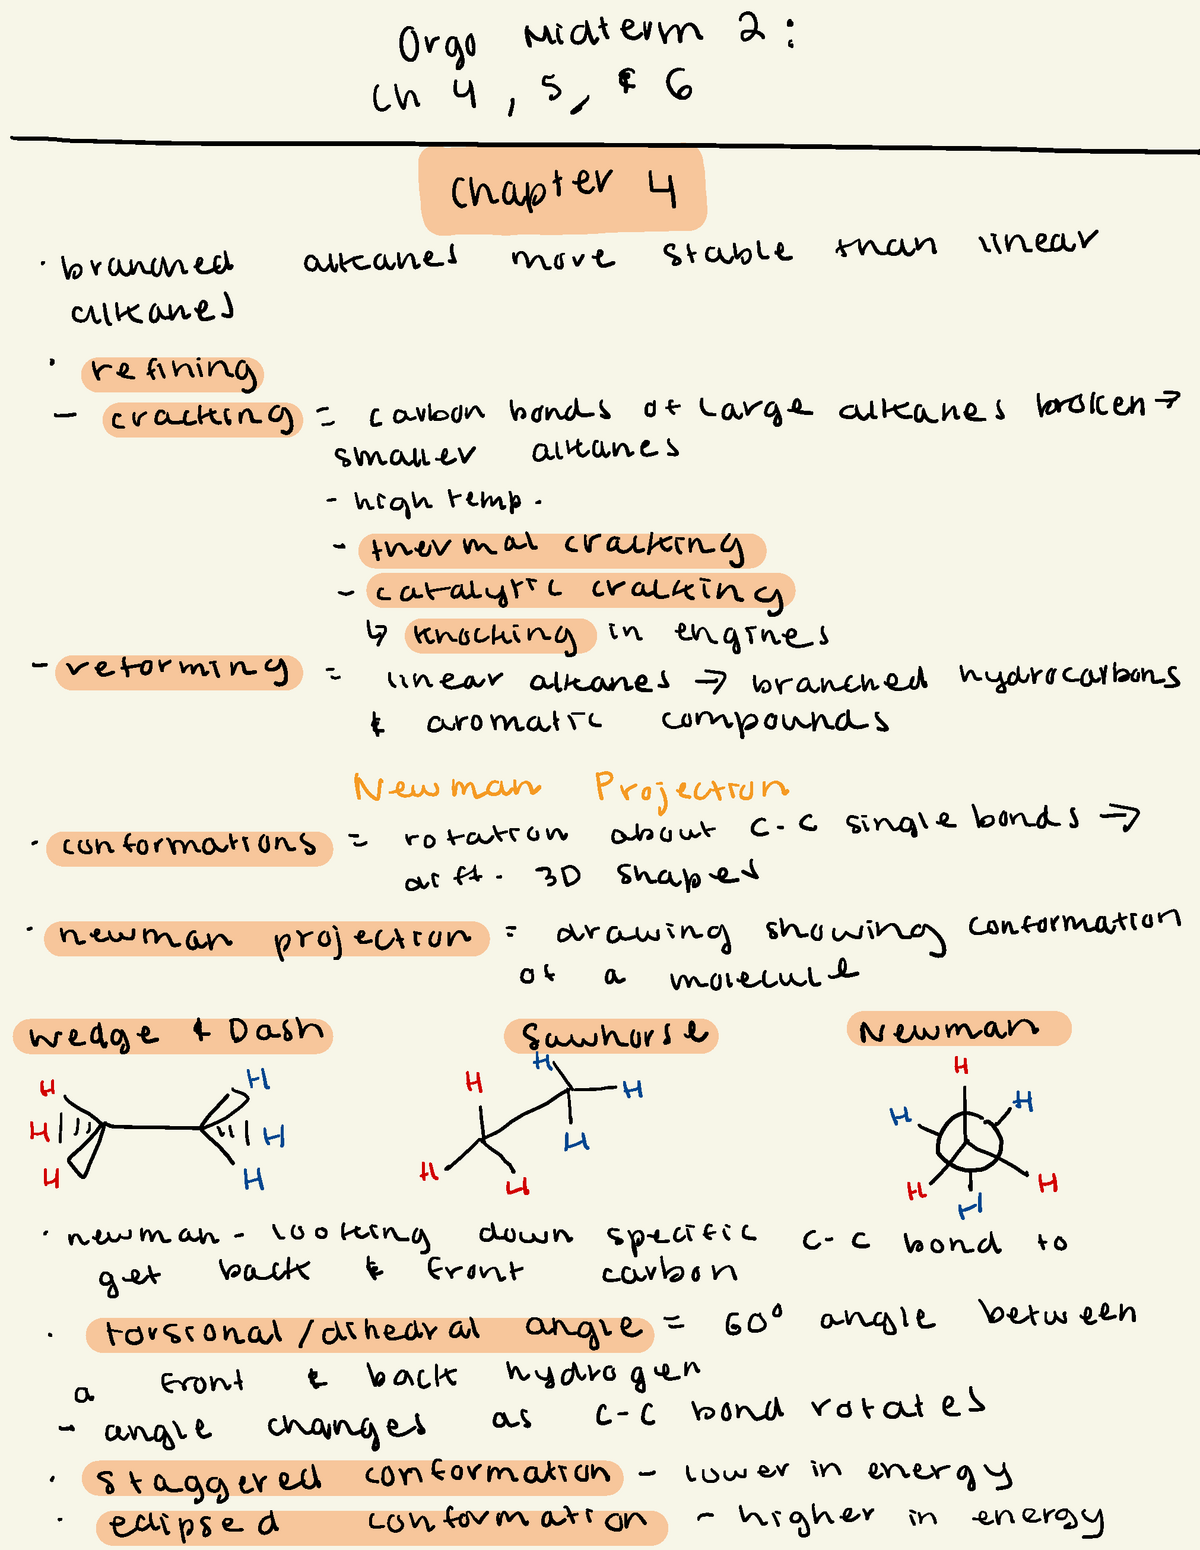 Orgo Midterm 2:
Ch 4, 5, & 6
Chapter 4
· branched alkanes more stable than linear
alkanes
· refining
- cracking = carbon bonds of large alkanes broken →
smaller alkanes
- high temp.
- thermal cracking
- catalytic cracking
↳ knocking in engines
- reforming = linear alkanes → branched hydrocarbons
& aromatic compounds
Newman Projection
· conformations = rotation about C-C single bonds →
diff. 3D shapes
· newman projection = drawing showing conformation
of a molecule
Wedge & Dash Sawhorse Newman
H H H H H H
H H H H H H
H H H H H H
· newman - looking down specific C-C bond to
get back & front carbon
· torsional/dihedral angle = 60° angle between
a front & back hydrogen
- angle changes as C-C bond rotates
· staggered conformation - lower in energy
· eclipsed conformation - higher in energy